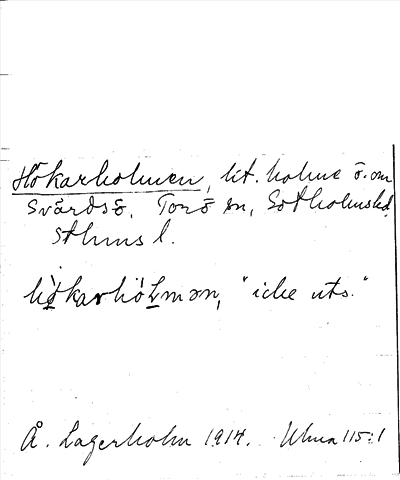 Hökarholmen, lit. holme ö. om
Svärdsö, Torö sn, Sotholms hd,
Sthlms l.
"icke uts."
Å. Lagerholm 1917. Ulma 115:1